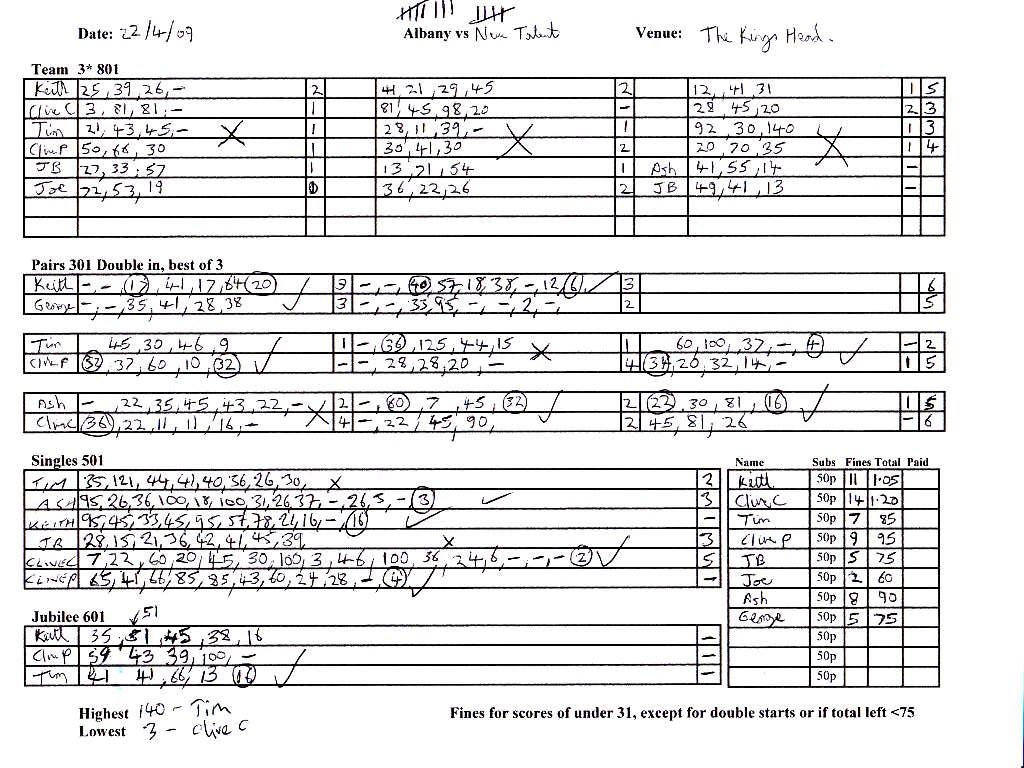 Date: 22/4/09 Albany vs New Talent Venue: The Kings Head.
Team 3* 801
Keith 25, 39, 26, - 2 41, 21, 29, 45 2 12, 41, 31 1 5
Clive C 3, 81, 81, - 1 81, 45, 98, 20 - 28, 45, 20 2 3
Tim 21, 43, 45, - X 1 28, 11, 39, - X 1 92, 30, 140 X 1 3
Clive P 50, 66, 30 1 30, 41, 30 2 20, 70, 35 1 4
JB 27, 33, 57 1 13, 71, 54 1 Ash 41, 55, 14 -
Joe 72, 53, 19 36, 22, 26 2 JB 49, 41, 13 -
Pairs 301 Double in, best of 3
Keith -, -, 17, 41, 17, 64, 20 ✓ -, -, 40, 57, 18, 38, -, 12, 6, ✓ 3 6
George -, -, 35, 41, 28, 38 3 -, -, 33, 95, -, -, 2, -, 2 5
Tim 45, 30, 46, 9 ✓ 1 -, 36, 125, 44, 15 X 1 60, 100, 37, -, 4 ✓ - 2
Clive P 32, 37, 60, 10, 32 - -, 28, 28, 20, - 4 34, 20, 32, 14, - 1 5
Ash -, 22, 35, 45, 43, 22, - X 2 -, 60, 7, 45, 32 ✓ 2 22, 30, 81, 16 ✓ 1 5
Clive C 36, 22, 11, 11, 16, - 4 -, 22, 45, 90, 2 45, 81, 26 - 6
Singles 501 Name Subs Fines Total Paid
TIM 35, 121, 44, 41, 40, 36, 26, 30, X 2 Keith 50p 11 1.05
ASH 95, 26, 36, 100, 18, 100, 31, 26, 37, -, 26, 3, - 3 ✓ 3 Clive C 50p 14 1.20
KEITH 95, 45, 33, 45, 95, 57, 78, 21, 16, -, 16 ✓ - Tim 50p 7 85
JB 28, 15, 21, 36, 42, 41, 45, 39, X 3 Clive P 50p 9 95
CLIVEC 7, 22, 60, 20, 45, 30, 100, 3, 46, 100, 36, 24, 6, -, -, - 2 ✓ 5 JB 50p 5 75
CLIVEP 65, 41, 66, 85, 85, 43, 60, 24, 28, -, 4 ✓ - Joe 50p 2 60
Ash 50p 8 90
Jubilee 601 51 George 50p 5 75
Keith 35, 51, 45, 38, 16 - 50p
Clive P 59 43 39, 100, - ✓ - 50p
Tim 41 41, 66, 13 16 - 50p
Highest 140 - Tim
Lowest 3 - Clive C
Fines for scores of under 31, except for double starts or if total left <75